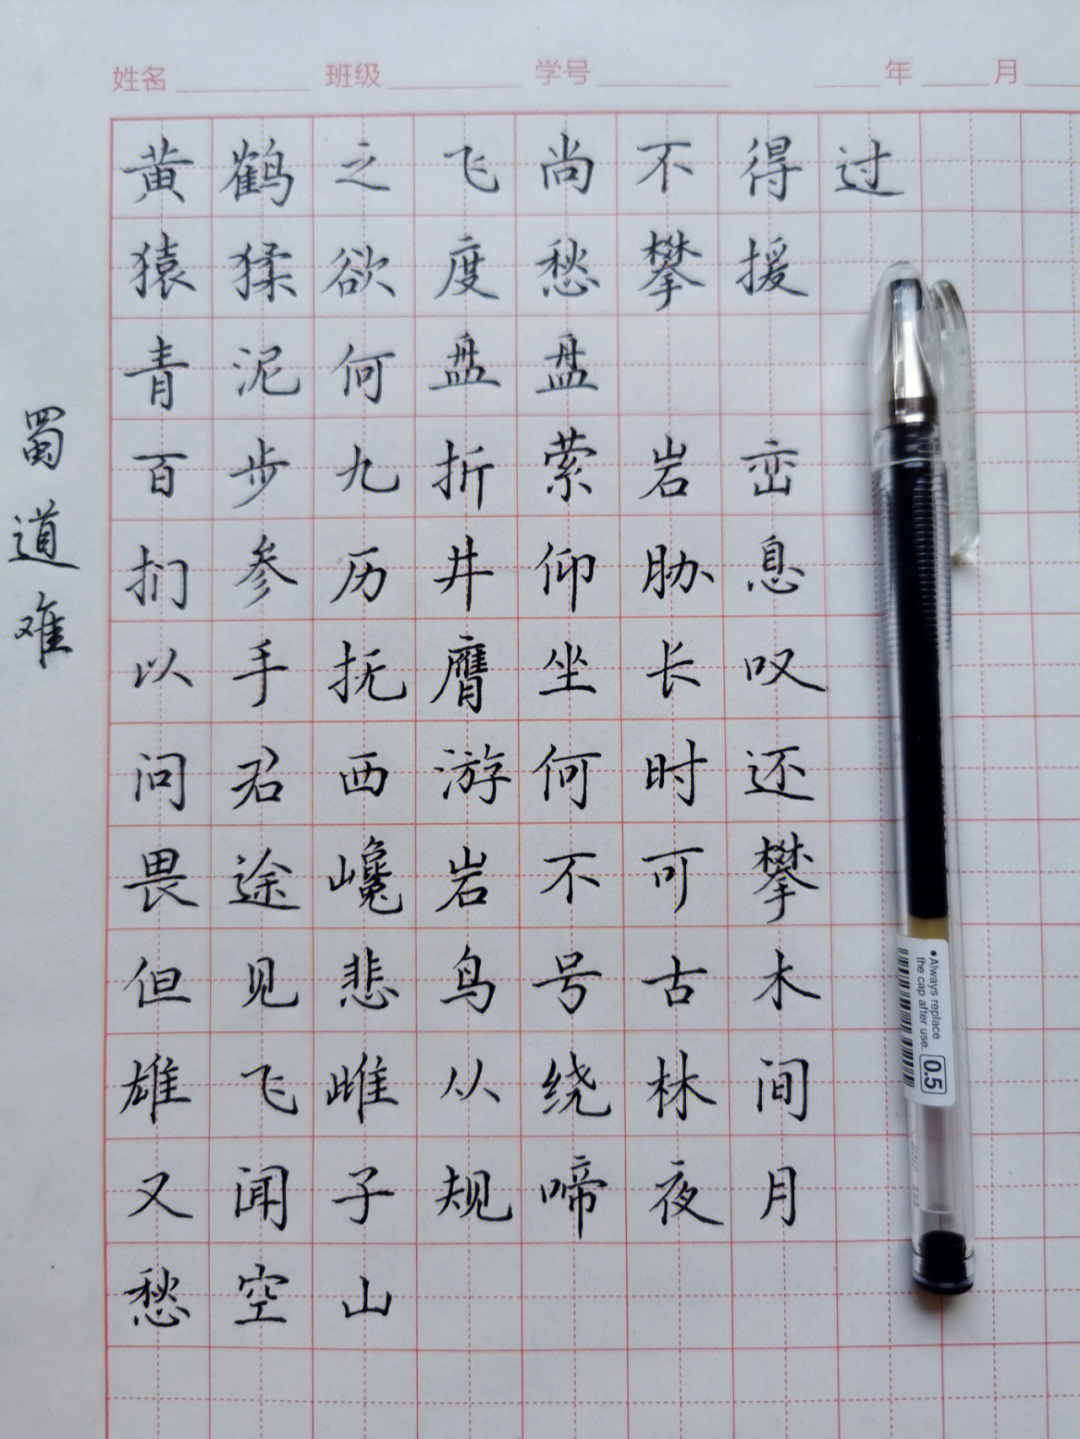 姓名 班级 学号 年 月
黄鹤之飞尚不得过
猿猱欲度愁攀援
青泥何盘盘
百步九折萦岩峦
扪参历井仰胁息
以手抚膺坐长叹
问君西游何时还
畏途巉岩不可攀
但见悲鸟号古木
雄飞雌从绕林间
又闻子规啼夜月
愁空山
蜀道难
•Always replace
the cap after use.
0.5